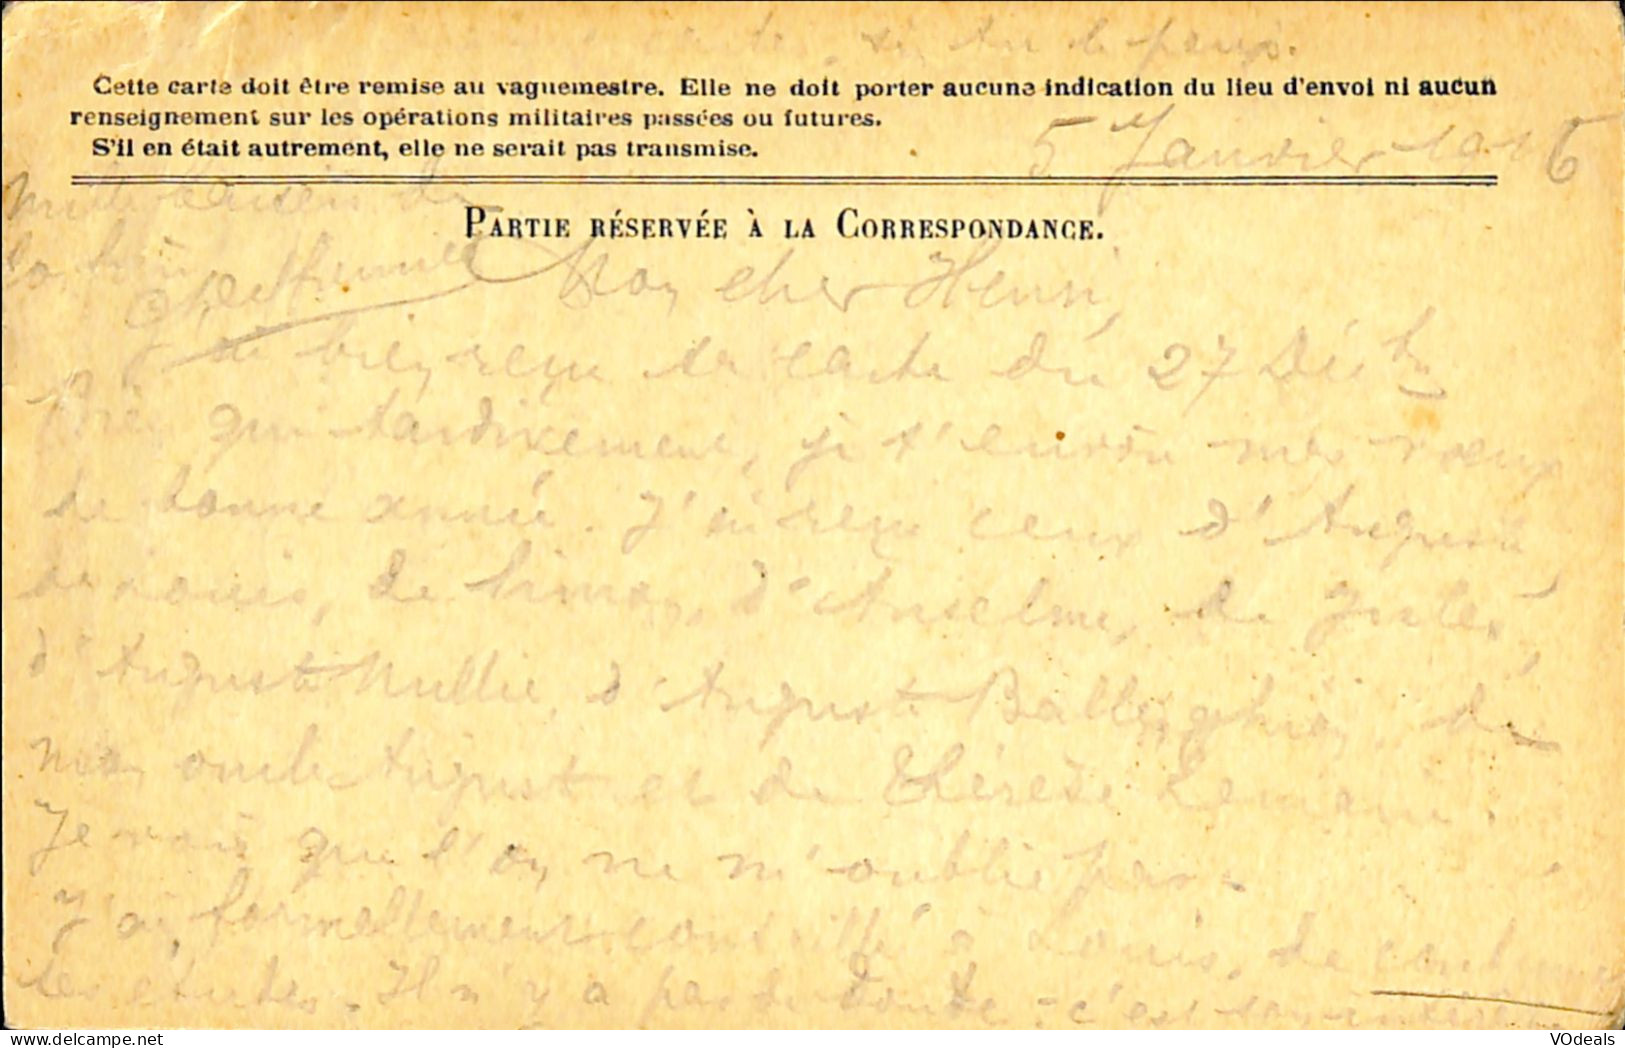 cartes, si tu le peux.
Cette carte doit être remise au vaguemestre. Elle ne doit porter aucune indication du lieu d'envoi ni aucun
renseignement sur les opérations militaires passées ou futures.
S'il en était autrement, elle ne serait pas transmise.
5 Janvier 1916
PARTIE RÉSERVÉE À LA CORRESPONDANCE.
Mon cher Henri,
J'ai bien reçu ta carte du 27 Déc
Bien que tardivement, je t'envoie mes vœux
de bonne année. J'ai reçu ceux d'Auguste
de Louis, de Simon, d'Anselme, de Jules,
d'Auguste Mullie, d'Auguste de
mon oncle August et de Thérèse
Je vois que l'on ne m'oublie pas.
J'ai formellement conseillé à Louis, de continuer
ses études. Il n'y a pas de doute - c'est son
VOdeals